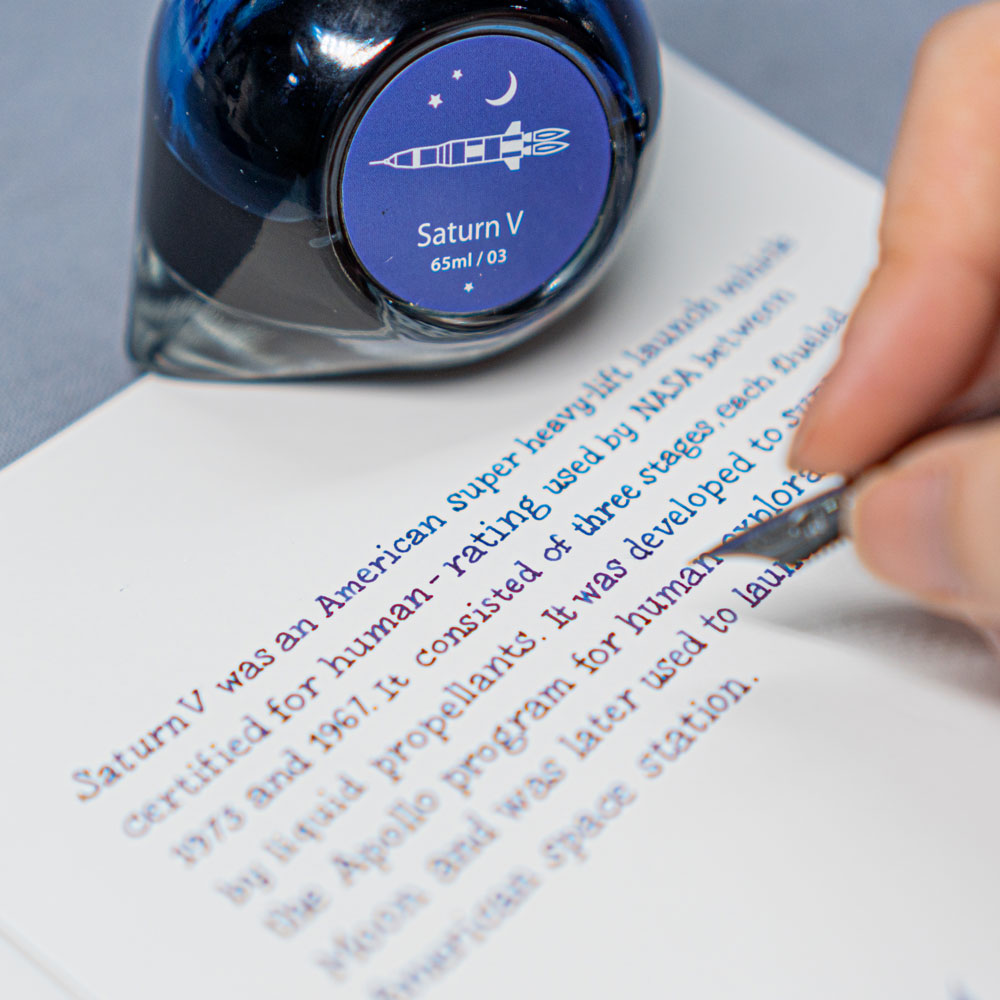 Saturn V
65ml / 03
Saturn V was an American Super heavy-lift launch vehicle
certified for human-rating used by NASA between
1973 and 1967. It consisted of three stages, each fueled
by liquid propellants. It was developed to
the Apollo program for human
Moon and was later used to
American space station.